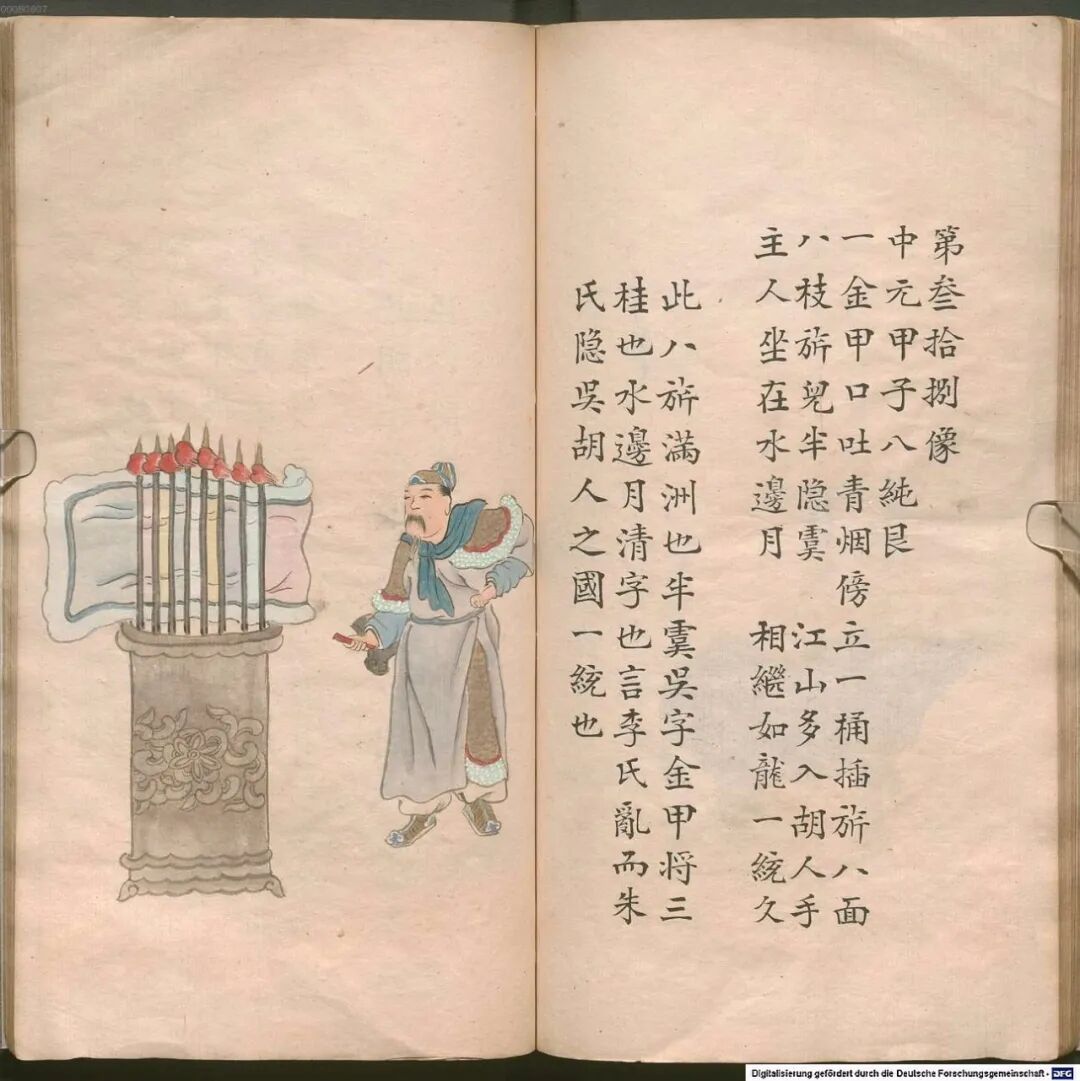 第叁拾捌像
中元甲子八純艮
一金甲口吐青烟傍立一桶插旂八面
八枝旂兒半隱虞 江山多入胡人手
主人坐在水邊月 相繼如龍一統久
此八旂滿洲也半虞吳字金甲将三
桂也水邊月清字也言李氏亂而朱
氏隐吳胡人之國一統也
00080607
Digitalisierung gefördert durch die Deutsche Forschungsgemeinschaft - DFG